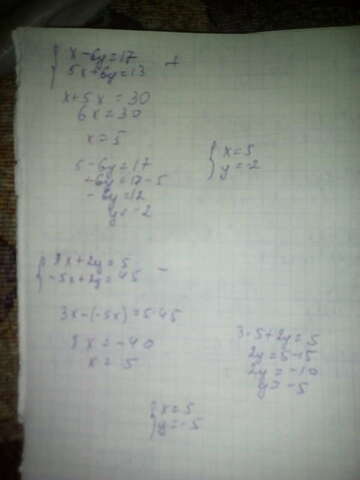 x-6y=17
5x+6y=13 +
x+5x=30
6x=30
x=5
5-6y=17
-6y=17-5
-6y=12
y=-2
x=5
y=-2
3x+2y=5
-5x+2y=45 -
3x-(-5x)=5-45
8x=-40
x=-5
3·5+2y=5
2y=5-15
2y=-10
y=-5
x=5
y=-5